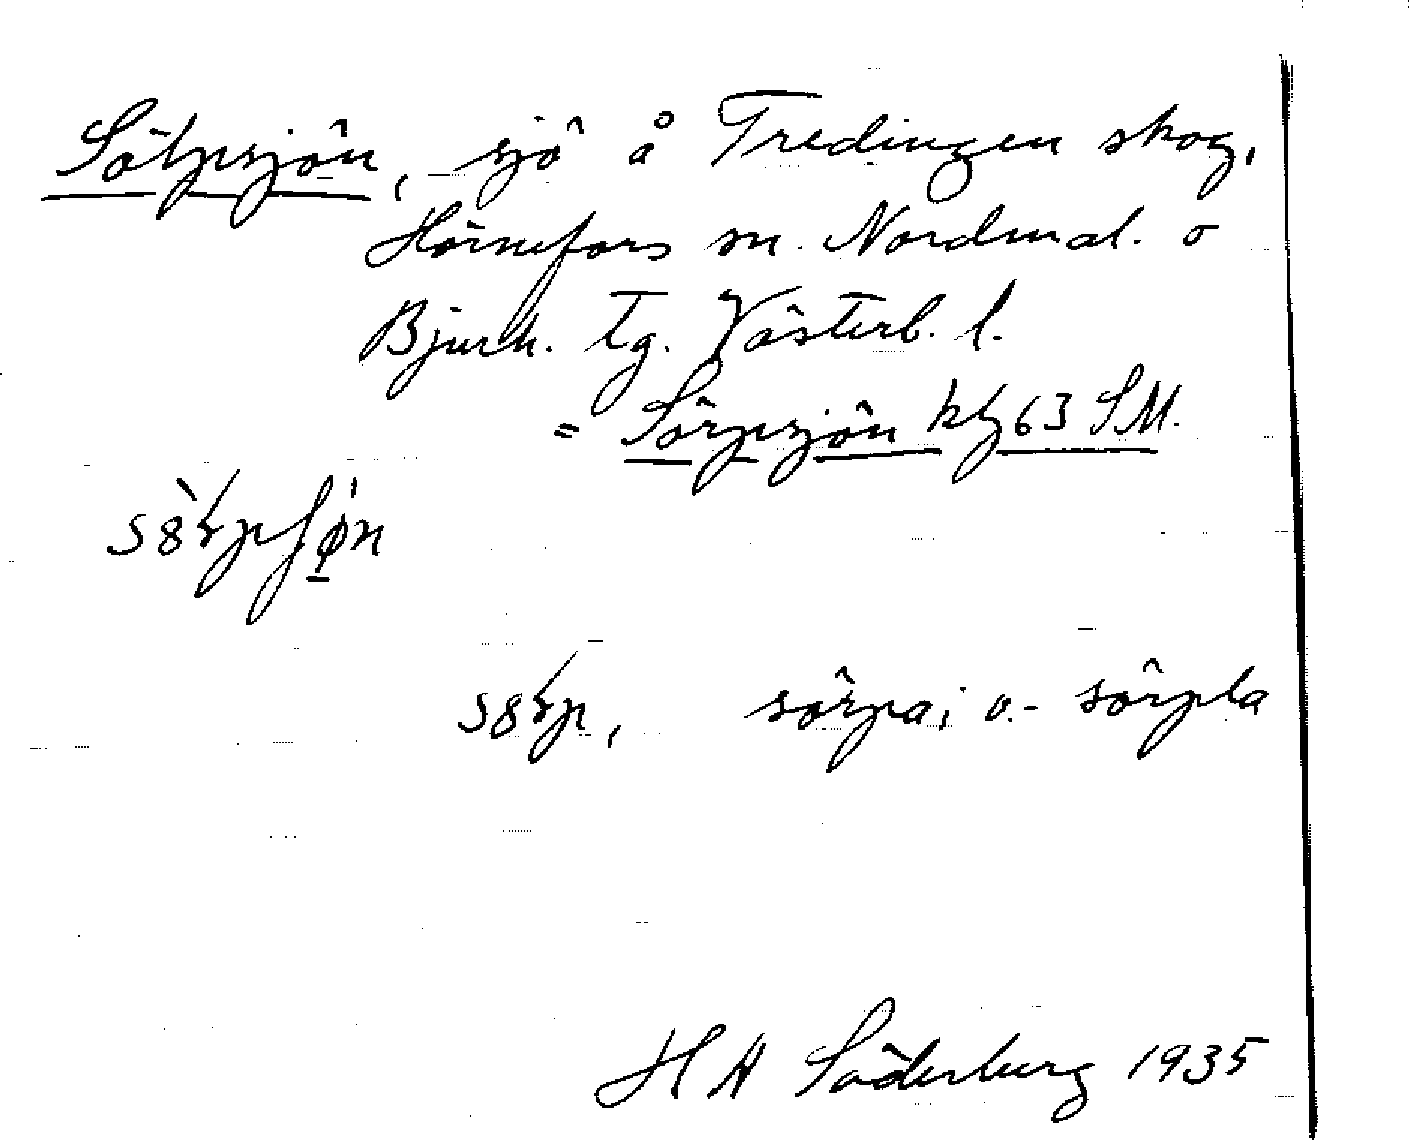 Sölpsjön, sjö å Tredingen skog,
Hörnefors sn. Nordmal. o
Bjurh. tg. Västerb. l.
= Sörpsjön kbl 63 SM.
sörpa; v.- sörpla
H A Söderberg 1935